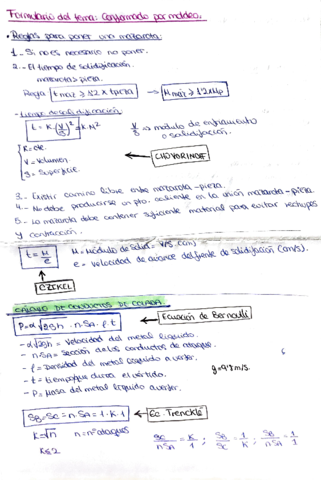 Formulario del tema: Conformado por moldeo.
- Reglas para poner una mazarota:
1.- Si no es necesario no poner.
2.- El tiempo de solidificación.
mazarota > pieza.
Regla tmaz ≥ 1'2 x tpieza → Mmaz ≥ 1'2xMp
- Tiempo de solidificación
t = K(V/S)² = K·M² V/S => módulo de enfriamiento o solidificación.
K = cte
V = Volumen
S = Superficie. ← CHOVORINOF
3.- Existir camino libre entre mazarota-pieza.
4.- No debe producirse un pto. caliente en la unión mazarota-pieza
5.- La mazarota debe contener suficiente material para evitar rechupes
y contracción.
t = M/e M = módulo de solid. V/S, (cm)
e = velocidad de avance del frente de solidificación (cm/s).
CZIKEL
CÁLCULO DE CONDUCTOS DE COLADA.
P = α√2gh · n·SA · ρ · t ← Ecuación de Bernoulli
- α√2gh = Velocidad del metal líquido.
- n·SA = Sección de los conductos de ataque.
- ρ = Densidad del metal líquido a verter. g = 9'8 m/s.
- t = tiempo que dura el vertido.
- P = Masa del metal líquido a verter.
SB - SC = n SA = 1·K·1 ← Ec. Trenckle
K = √n n = nº ataques SC/nSA = K/1 ; SB/SC = 1/K ; SB/nSA = 1/1
K ≤ 2